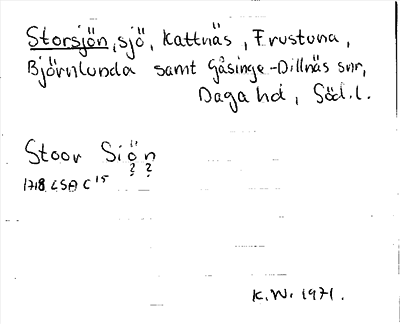 Storsjön, sjö, Kattnäs, Frustuna,
Björnlunda samt Gåsinge-Dillnäs snr,
Daga hd, Söd.l.
Stoor Siön
? ?
1718 LSA C 15
K.W. 1971.